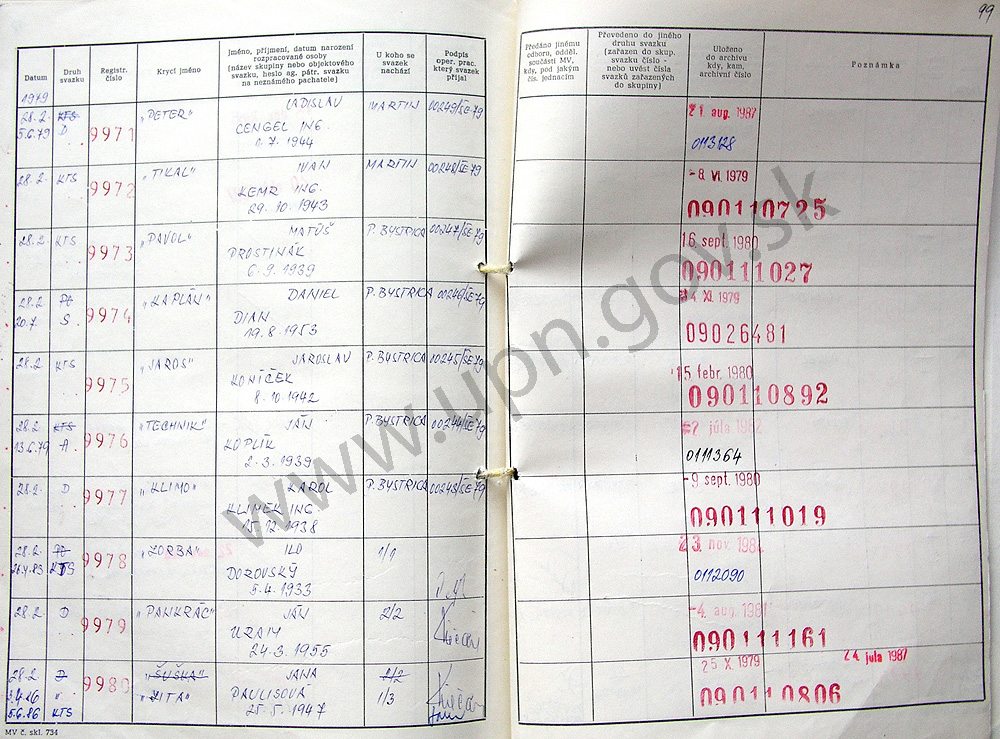 99
Datum
Druh svazku
Registr. číslo
Krycí jméno
Jméno, příjmení, datum narození
rozpracované osoby
(název skupiny nebo objektového
svazku, heslo ag. pátr. svazku
na neznámého pachatele)
U koho se
svazek
nachází
Podpis
oper. prac.
který svazek
přijal
Předáno jinému
odboru, odděl.
součásti MV,
kdy, pod jakým
čís. jednacím
Převedeno do jiného
druhu svazku
(zařazen do skup.
svazku číslo -
nebo uvést čísla
svazků zařazených
do skupiny)
Uloženo
do archivu
kdy, kam,
archivní číslo
Poznámka
1979
28.2. KTS 9971 „PETER" LADISLAV MARTIN 00249/ŠE-79 21. aug. 1987
5.6.79 D CENGEL ING. 0113128
1.7. 1944
28.2. KTS 9972 „TIKAL" IVAN MARTIN 00248/ŠE-79 -8. VI. 1979
KEMR ING. 090110725
29.10.1943
28.2. KTS 9973 „PAVOL" MATÚŠ P. BYSTRICA 00247/ŠE-79 16. sept. 1980
PROSTINÁK 090111027
6.9.1939
28.2. 9974 „KAPLÁN" DANIEL P. BYSTRICA 00246/ŠE-79 XI. 1979
20.7. S DIAN 09026481
19.8.1953
28.2. KTS 9975 „JAROS" JAROSLAV P. BYSTRICA 00245/ŠE-79 15. febr. 1980
KONÍČEK 090110892
8.10.1942
28.2. KTS 9976 „TECHNIK" JÁN P. BYSTRICA 00244/ŠE-79 júla 1982
13.6.79 A. KOPLÍK 0111364
2.3.1939
28.2. D 9977 „KLIMO" KAROL P. BYSTRICA 00243/ŠE-79 -9. sept. 1980
KLIMEK ING 090111019
15.12.1938
28.2. 9978 „ZORBA" ILD 1/1 23. nov. 198
KTS DOROVSKÝ 0112090
5.4.1933
28.2. D 9979 „PANKRÁC" JÁN 2/2 -4. aug. 1981
URAM 090111161
24.3.1955
28.2. D 9980 „ŠUŠKA" JANA 1/2 25. X. 1979 24. júla 1987
3.4.86 " „ZITA" PAULISOVÁ 1/3 090110806
5.6.86 KTS 25.5.1947
MV č. skl. 734
www.upn.gov.sk